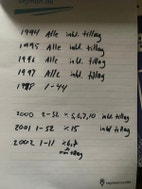 1994 Alle inkl. tillæg
1995 Alle inkl. tillæg
1996 Alle inkl. tillæg
1997 Alle inkl. tillæg
1998 1-44
2000 2-52 × 5,6,7,10 inkl tillæg
2001 1-52 × 15 inkl tillæg
2002 1-11 × 6,7
tillæg